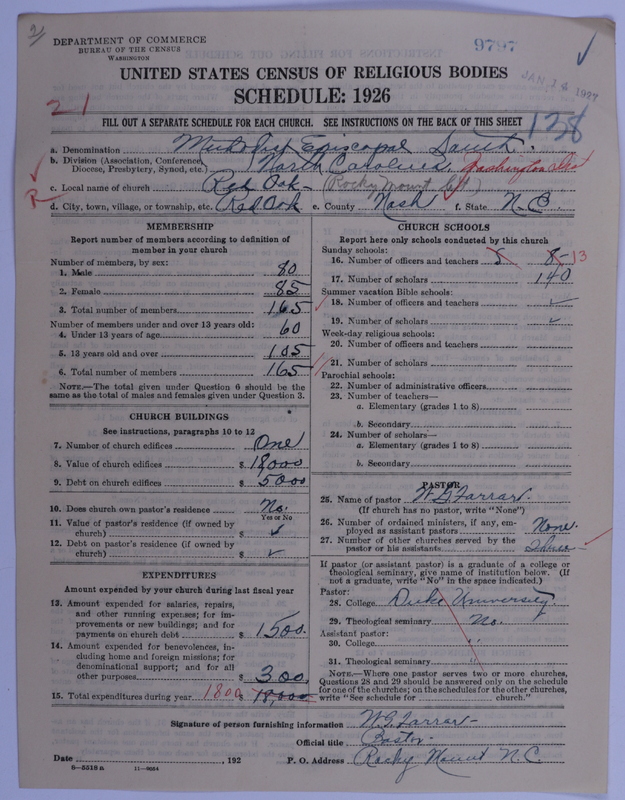 DEPARTMENT OF COMMERCE
BUREAU OF THE CENSUS
WASHINGTON
9797
JAN 14 1927
UNITED STATES CENSUS OF RELIGIOUS BODIES
SCHEDULE: 1926
21
FILL OUT A SEPARATE SCHEDULE FOR EACH CHURCH. SEE INSTRUCTIONS ON THE BACK OF THIS SHEET
138
a. Denomination Methodist Episcopal South.
b. Division (Association, Conference, Diocese, Presbytery, Synod, etc.) North Carolina Washington Dist
c. Local name of church Red Oak (Rocky Mount Ct)
R
d. City, town, village, or township, etc. Red Oak e. County Nash f. State N.C
MEMBERSHIP
Report number of members according to definition of
member in your church
Number of members, by sex:
1. Male 80
2. Female 85
3. Total number of members 165
Number of members under and over 13 years old:
4. Under 13 years of age 60
5. 13 years old and over 105
6. Total number of members 165
NOTE.—The total given under Question 6 should be the
same as the total of males and females given under Question 3.
CHURCH BUILDINGS
See instructions, paragraphs 10 to 12
7. Number of church edifices One
8. Value of church edifices $ 18,000
9. Debt on church edifices $ 5000
10. Does church own pastor's residence No.
Yes or No
11. Value of pastor's residence (if owned by
church) $ ✓
12. Debt on pastor's residence (if owned by
church) $ ✓
EXPENDITURES
Amount expended by your church during last fiscal year
13. Amount expended for salaries, repairs,
and other running expenses; for im-
provements or new buildings; and for
payments on church debt $ 1500.
14. Amount expended for benevolences, in-
cluding home and foreign missions; for
denominational support; and for all
other purposes $ 300
15. Total expenditures during year 1800 $ 18,000
CHURCH SCHOOLS
Report here only schools conducted by this church
Sunday schools:
16. Number of officers and teachers 5 8-13
17. Number of scholars 140
Summer vacation Bible schools:
18. Number of officers and teachers ✓
19. Number of scholars ✓
Week-day religious schools:
20. Number of officers and teachers
21. Number of scholars
Parochial schools:
22. Number of administrative officers
23. Number of teachers—
a. Elementary (grades 1 to 8)
b. Secondary
24. Number of scholars—
a. Elementary (grades 1 to 8)
b. Secondary
PASTOR
25. Name of pastor W G Farrar.
(If church has no pastor, write "None")
26. Number of ordained ministers, if any, em-
ployed as assistant pastors None.
27. Number of other churches served by the
pastor or his assistants Three
If pastor (or assistant pastor) is a graduate of a college or
theological seminary, give name of institution below. (If
not a graduate, write "No" in the space indicated.)
Pastor:
28. College Duke University.
29. Theological seminary No.
Assistant pastor:
30. College "
31. Theological seminary "
NOTE.—Where one pastor serves two or more churches,
Questions 28 and 29 should be answered only on the schedule
for one of the churches; on the schedules for the other churches,
write "See schedule for church."
Signature of person furnishing information W G Farrar
Official title Pastor
Date , 192 P. O. Address Rocky Mount N.C.
8—5518 a 11—9034